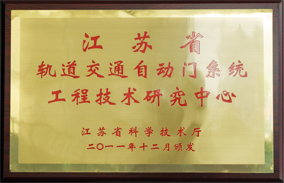 江苏省
轨道交通自动门系统
工程技术研究中心
江苏省科学技术厅
二〇一一年十二月颁发